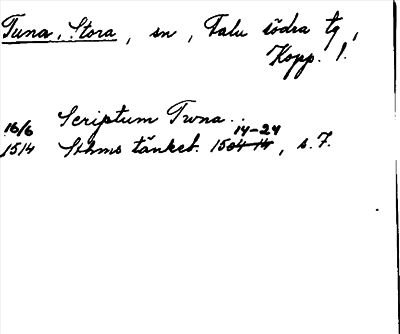 Tuna, Stora, sn, Falu södra tg,
Kopp. l.
16/6 Scriptum Twna..
1514 Sthms tänkeb. 1504-14 14-24, s. 7.